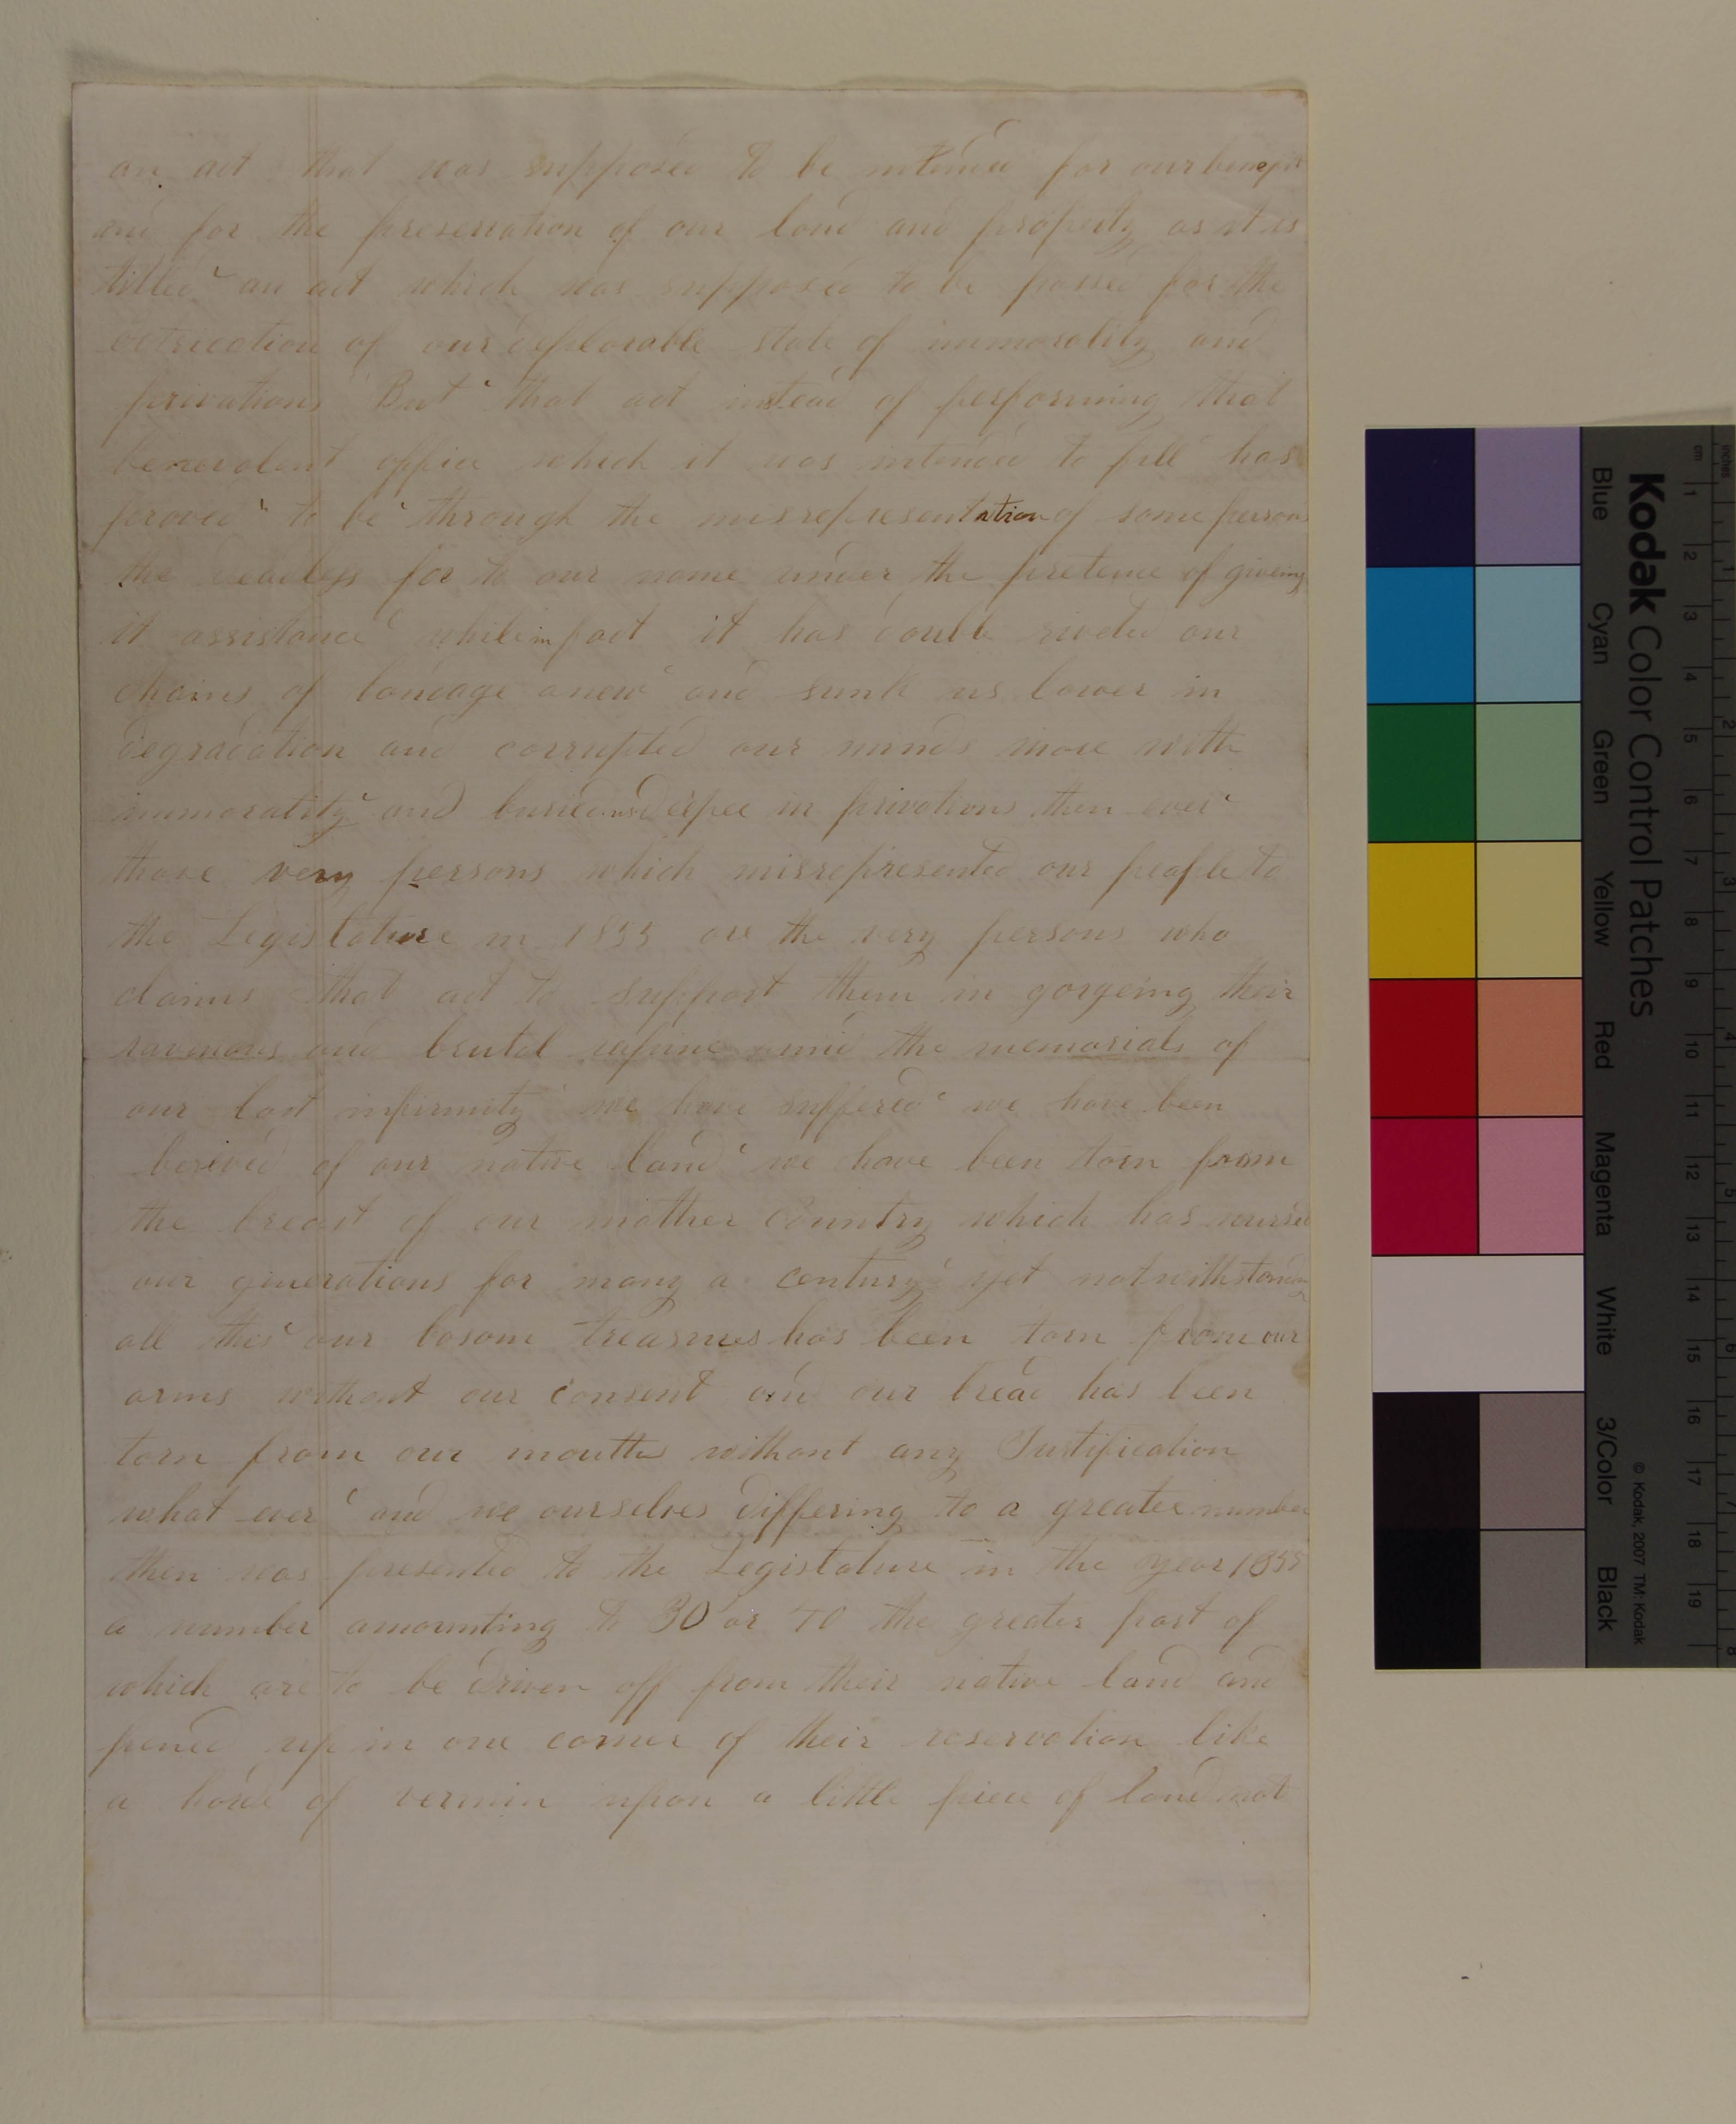 an act that was supposed to be intended for our benefit
and for the preservation of our land and property as it is
titled an act which was supposed to be passed for the
of our deplorable state of immorality and
privations But that act instead of performing that
benevolent office which it was intended to fill has
proved to be through the misrepresentation of some persons
the foe to our name under the pretence of giveing
it assistance while in fact it has doubl riveted our
chains of bondage anew and sunk us lower in
degradation and corrupted our minds more with
immorality and buried us deeper in privations then ever
those very persons which misrepresented our people to
the Legislature in 1855 are the very persons who
claims that act to support them in gorgeing their
ravenous and brutal rapine amid the memorials of
our lost infirmity we have suffered we have been
bereved of our native land we have been torn from
the breast of our mother country which has nursed
our generations for many a century yet notwithstanding
all this our bosom treasures has been torn from our
arms without our consent and our bread has been
torn from our mouths without any Justification
what ever and we ourselves differing to a greater number
then was presented to the Legislature in the year 1855
a number amounting to 30 or 40 the greater part of
which are to be driven off from their native land and
pened up in one corner of their reservation like
a horde of vermin upon a little piece of land not
Kodak Color Control Patches
Blue Cyan Green Yellow Red Magenta White 3/Color Black
© Kodak, 2007 TM: Kodak
cm 1 2 3 4 5 6 7 8 9 10 11 12 13 14 15 16 17 18 19
inches 1 2 3 4 5 6 7 8